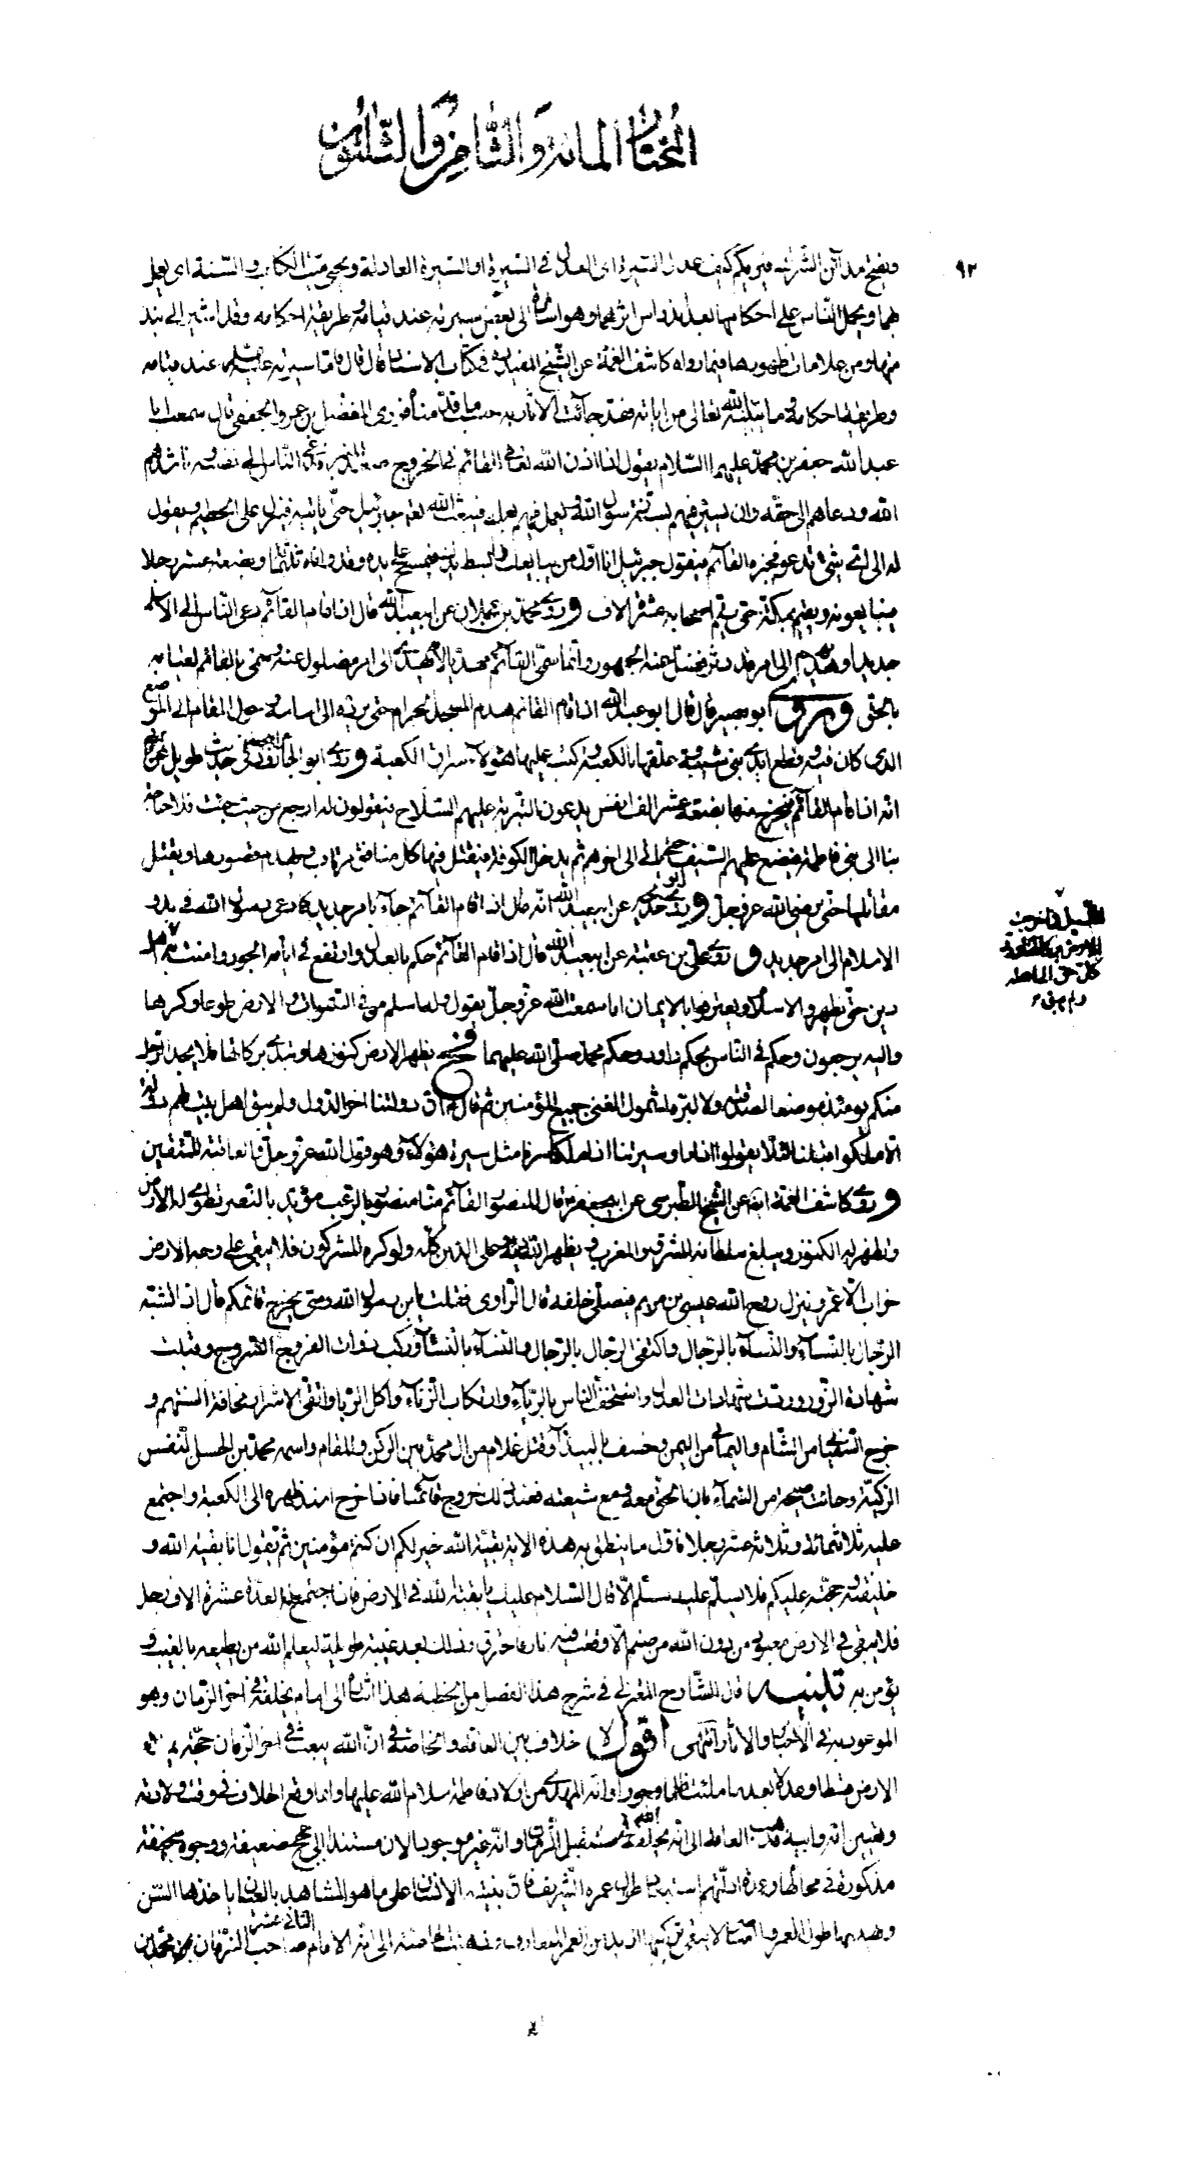 المختار المائة والثامن والثلثون
٩٢
ويفتح مدائن الشرك فيريكم كيف عدل السيرة اى العدل فى السيرة او السيرة العادلة ويحيى ميت الكتاب والسنة اى يعمل
بهما ويحمل الناس على احكامهما بعد اندراس اثرهما وهو اشارة الى بعض سيرته عند قيامه وطريقة احكامه وقد اشير الى نبذ
منها ومن علامات ظهوره فيما رواه كاشف الغمة عن الشيخ المفيد فى كتاب الارشاد قال قال فاما سيرته عليه السلام عند قيامه
وطريقة احكامه وما يبينه الله تعالى من اياته فقد جائت الاثار به حسب ما قدمناه فروى المفضل بن عمر الجعفى قال سمعت ابا
عبد الله جعفر بن محمد عليهما السلام يقول اذا اذن الله تعالى القائم فى الخروج صعد المنبر فدعى الناس الى نفسه وناشدهم
الله ودعاهم الى حقه وان يسير فيهم بسنة رسول الله ويعمل فيهم بعمله فيبعث الله تعالى جبرئيل حتى ياتيه فينزل على الحطيم ويقول
له الى اى شىء تدعو فيخبره القائم فيقول جبرئيل انا اول من يبايعك ابسط يدك فيمسح على يده وقد وافاه ثلثمائة وبضعة عشر رجلا
فيبايعونه ويقيم بمكة حتى يتم اصحابه عشرة الاف وروى محمد بن عجلان عن ابيعبد الله قال اذا قام القائم دعى الناس الى الاسلام
جديدا وهديهم الى امر قد دثر فضل عنه الجمهور وانما سمى القائم مهديا لانه يهدى الى امر مضلول عنه وسمى بالقائم لقيامه
بالحق وروى ابو بصير قال قال ابو عبد الله اذا قام القائم هدم المسجد الحرام حتى يرده الى اساسه وحول المقام الى الموضع
الذى كان فيه وقطع ايدى بنى شيبة وعلقها بالكعبة وكتب عليها هؤلاء سراق الكعبة وروى ابو الجارود عن ابيجعفر فى حديث طويل
انه اذا قام القائم فيخرج منها بضعة عشر الف انفس يدعون البترية عليهم السلاح فيقولون له ارجع من حيث جئت فلا حاجة
بنا الى بنى فاطمة فيضع عليهم السيف حتى ياتى الى اخرهم ثم يدخل الكوفة فيقتل فيها كل منافق مرتاب ويهدم قصورها ويقتل
مقاتليها حتى يرضى الله عز وجل وروى ابو خديجة عن ابيعبد الله انه قال اذا قام القائم جاء بامر جديد كما دعى رسول الله فى بدو
الاسلام الى امر جديد وروى على بن عقبة عن ابيعبد الله قال اذا قام القائم حكم بالعدل وارتفع فى ايامه الجور وامنت به السبل
دين حتى يظهروا الاسلام ويعترفوا بالايمان اما سمعت الله عز وجل يقول وله اسلم من فى السموات والارض طوعا وكرها
واليه يرجعون وحكم فى الناس بحكم داود وحكم محمد صلى الله عليهما فح يظهر الارض كنوزها وتبدى بركاتها فلا يجد الرجل
منكم يومئذ موضعا لصدقته ولا لبره لشمول الغنى جميع المؤمنين ثم قال ان دولتنا اخر الدول ولم يبق اهل بيت لهم دولة
الا ملكوا قبلنا لئلا يقولوا اذا راوا سيرتنا اذا ملكنا سرنا مثل سيرة هؤلاء وهو قول الله عز وجل والعاقبة للمتقين
وروى كاشف الغمة ايضا عن الشيخ الطبرسى عن ابيجعفر قال المنصور القائم منا منصور بالرعب مؤيد بالنصر تطوى له الارض
وتظهر له الكنوز ويبلغ سلطانه المشرق والمغرب ويظهر الله دينه على الدين كله ولو كره المشركون فلا يبقى على وجه الارض
خراب الا عمر وينزل روح الله عيسى بن مريم فيصلى خلفه قال الراوى فقلت يابن رسول الله ومتى يخرج قائمكم قال اذا تشبه
الرجال بالنساء والنساء بالرجال واكتفى الرجال بالرجال والنساء بالنساء وركب ذوات الفروج السروج وقبلت
شهادة الزور وردت شهادات العدل واستخف الناس بالرياء وارتكاب الزناء واكل الربا واتقى الاشرار مخافة السنتهم و
خرج السفيانى من الشام واليمانى من اليمن وخسف بالبيداء وقتل غلام من ال محمد بين الركن والمقام واسمه محمد بن الحسن النفس
الزكية وجائت صيحة من السماء بان الحق معه ومع شيعته فعند ذلك خروج قائمنا فاذا خرج اسند ظهره الى الكعبة واجتمع
عليه ثلاثمائة وثلاثة عشر رجلا فاول ما ينطق به هذه الاية بقية الله خير لكم ان كنتم مؤمنين ثم يقول انا بقية الله و
خليفته وحجته عليكم فلا يسلم عليه مسلم الا قال السلام عليك يا بقية الله فى الارض فاذا اجتمع له العدة عشرة الاف رجل
فلا يبقى فى الارض معبود من دون الله من صنم الا وقعت فيه نار فاحترق وذلك بعد غيبة طويلة ليعلم الله من يطيعه بالغيب و
يؤمن به تنبيه قال الشارح المعتزلى فى شرح هذا الفصل من الخطبة هذا اشارة الى امام يخلقه فى اخر الزمان وهو
الموعود به فى الاخبار والاثار انتهى اقول لا خلاف بين العامة والخاصة فى ان الله يبعث فى اخر الزمان حجة يملاء
الارض قسطا وعدلا بعد ما ملئت ظلما وجورا وانه المهدى من اولاد فاطمة سلام الله عليها وانما وقع الخلاف فى وقت ولادته
وتعيين امه وابيه فذهب العامة الى انه يخلقه الله فى مستقبل الزمان وانه غير موجود الان مستندا الى حجج ضعيفة ووجوه سخيفة
مذكورة فى محالها وعمدة ادلتهم استبعاد طول عمره الشريف فان بنية الانسان على ما هو المشاهد بالعيان ياخذها السن
ويهدمها طول العمر والعناصر لا يبقى تركيبها ازيد من العمر المتعارف وذهبت الخاصة الى انه الامام الثانى عشر صاحب الزمان محمد بن